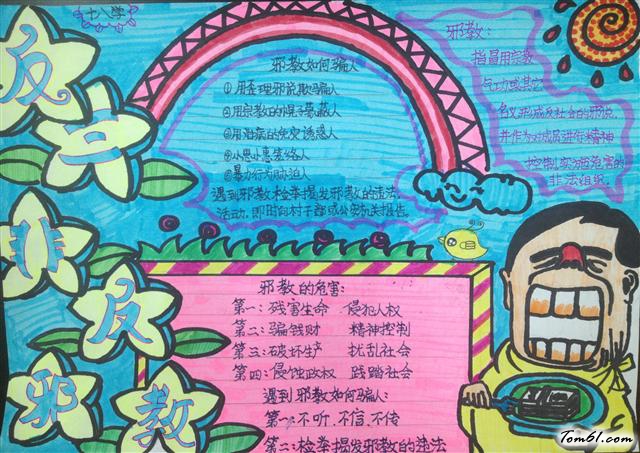 十八学
反
二
非
反
邪
教
邪教如何骗人
①用歪理邪说欺骗人
②用宗教的幌子蒙蔽人
③用治病的免灾诱惑人
④小恩小惠笼络人
⑤暴力行为胁迫人
遇到邪教检举揭发邪教的违法
活动,即时向村干部或公安机关报告。
邪教:
指冒用宗教
气功或其它
名义形成反社会的邪说,
并作为对成员进行精神
控制,实施危害的
非法组织.
邪教的危害:
第一:残害生命 侵犯人权
第二:骗钱财 精神控制
第三:破坏生产 扰乱社会
第四:侵蚀政权 践踏社会
遇到邪教如何骗人:
第一:不听.不信.不传
第二:检举揭发邪教的违法
Tom61.com